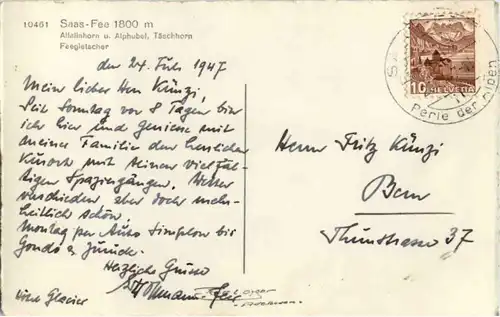 10461 Saas-Fee 1800 m
Allalinhorn u. Alphubel, Täschhorn
Feegletscher
den 24. Juli 1947
Mein lieber Herr Künzi,
Seit Sonntag vor 8 Tagen bin
ich hier und geniesse mit
meiner Familie den herrlichen
Kurort mit seinen vielfäl-
tigen Spaziergängen. Wetter
verschieden, aber doch mehr-
heitlich schön.
Montag per Auto Simplon bis
Gondo & zurück.
Herzliche Grüsse
Hotel Glacier
10 HELVETIA
Perle der Alpen
Herrn Fritz Künzi
Bern
Thunstrasse 37